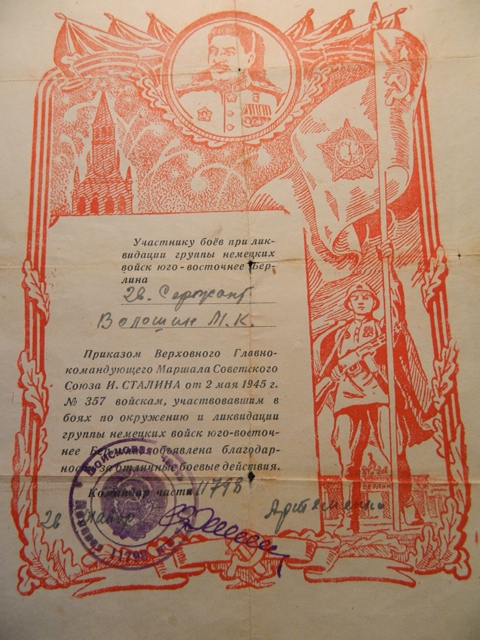 Участнику боёв при лик-
видации группы немецких
войск юго-восточнее Бер-
лина
гв. Сержант
Волошин М. К.
Приказом Верховного Главно-
командующего Маршала Советского
Союза И. СТАЛИНА от 2 мая 1945 г.
№ 357 войскам, участвовавшим в
боях по окружению и ликвидации
группы немецких войск юго-восточ-
нее Берлина объявлена благодар-
ность за отличные боевые действия.
Командир части 11798
гв майор Артеменко
БЕРЛИН